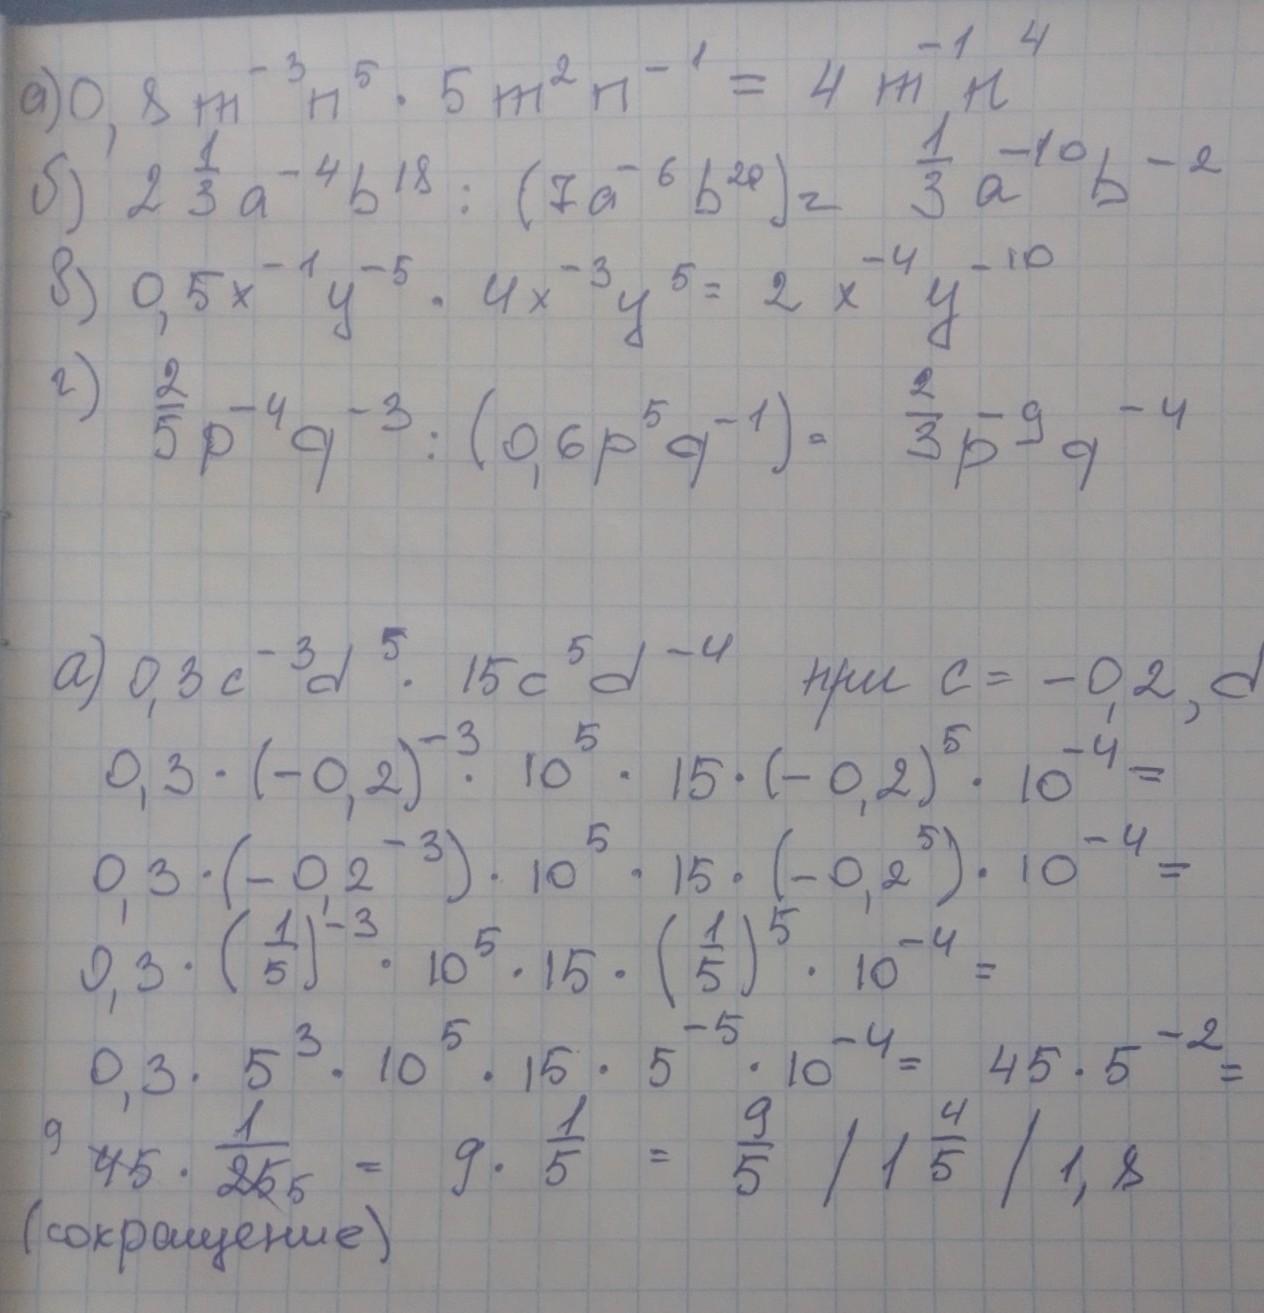 а) 0,8 m⁻³n⁵ · 5 m²n⁻¹ = 4 m⁻¹n⁴
б) 2 1/3 a⁻⁴b¹⁸ : (7a⁻⁶b²⁰) = 1/3 a⁻¹⁰b⁻²
в) 0,5x⁻¹y⁻⁵ · 4x⁻³y⁵ = 2 x⁻⁴y⁻¹⁰
г) 2/5 p⁻⁴q⁻³ : (0,6p⁵q⁻¹) = 2/3 p⁻⁹q⁻⁴
а) 0,3c⁻³d⁵ · 15c⁵d⁻⁴ при c = -0,2, d
0,3 · (-0,2)⁻³ · 10⁵ · 15 · (-0,2)⁵ · 10⁻⁴ =
0,3 · (-0,2⁻³) · 10⁵ · 15 · (-0,2⁵) · 10⁻⁴ =
0,3 · (1/5)⁻³ · 10⁵ · 15 · (1/5)⁵ · 10⁻⁴ =
0,3 · 5³ · 10⁵ · 15 · 5⁻⁵ · 10⁻⁴ = 45 · 5⁻² =
9 45 · 1/25 5 = 9 · 1/5 = 9/5 / 1 4/5 / 1,8
(сокращение)